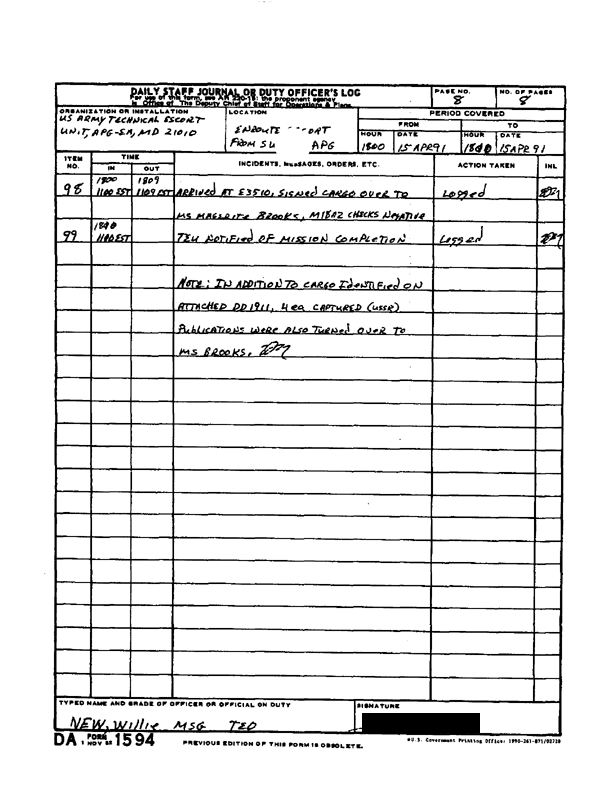 DAILY STAFF JOURNAL OR DUTY OFFICER'S LOG
For use of this form, see AR 220-15; the proponent agency
is Office of The Deputy Chief of Staff for Operations & Plans.
PAGE NO.
8
NO. OF PAGES
8
ORGANIZATION OR INSTALLATION
US ARMY TECHNICAL ESCORT
UNIT, APG-EA, MD 21010
LOCATION
ENROUTE
FROM SU APG
PERIOD COVERED
FROM TO
HOUR DATE HOUR DATE
1800 15 APR 91 15 APR 91
ITEM NO. TIME INCIDENTS, MESSAGES, ORDERS, ETC. ACTION TAKEN INL
IN OUT
1800 1809
98 1100 EST 1109 EST ARRIVED AT E3510, SIGNED CARGO OVER TO Logged
MS BROOKS, M18A2 CHECKS NEGATIVE
99 1100 EST TEU NOTIFIED OF MISSION COMPLETION Logged
NOTE: IN ADDITION TO CARGO IdENTIFIED ON
ATTACHED DD1911, 4 ea CAPTURED (USSR)
PUBLICATIONS WERE ALSO TURNED OVER TO
MS BROOKS.
TYPED NAME AND GRADE OF OFFICER OR OFFICIAL ON DUTY
NEW, Willie MSG TEO
SIGNATURE
DA FORM 1 NOV 1594
PREVIOUS EDITION OF THIS FORM IS OBSOLETE.
*U.S. Government Printing Office: 1990-261-871/02720